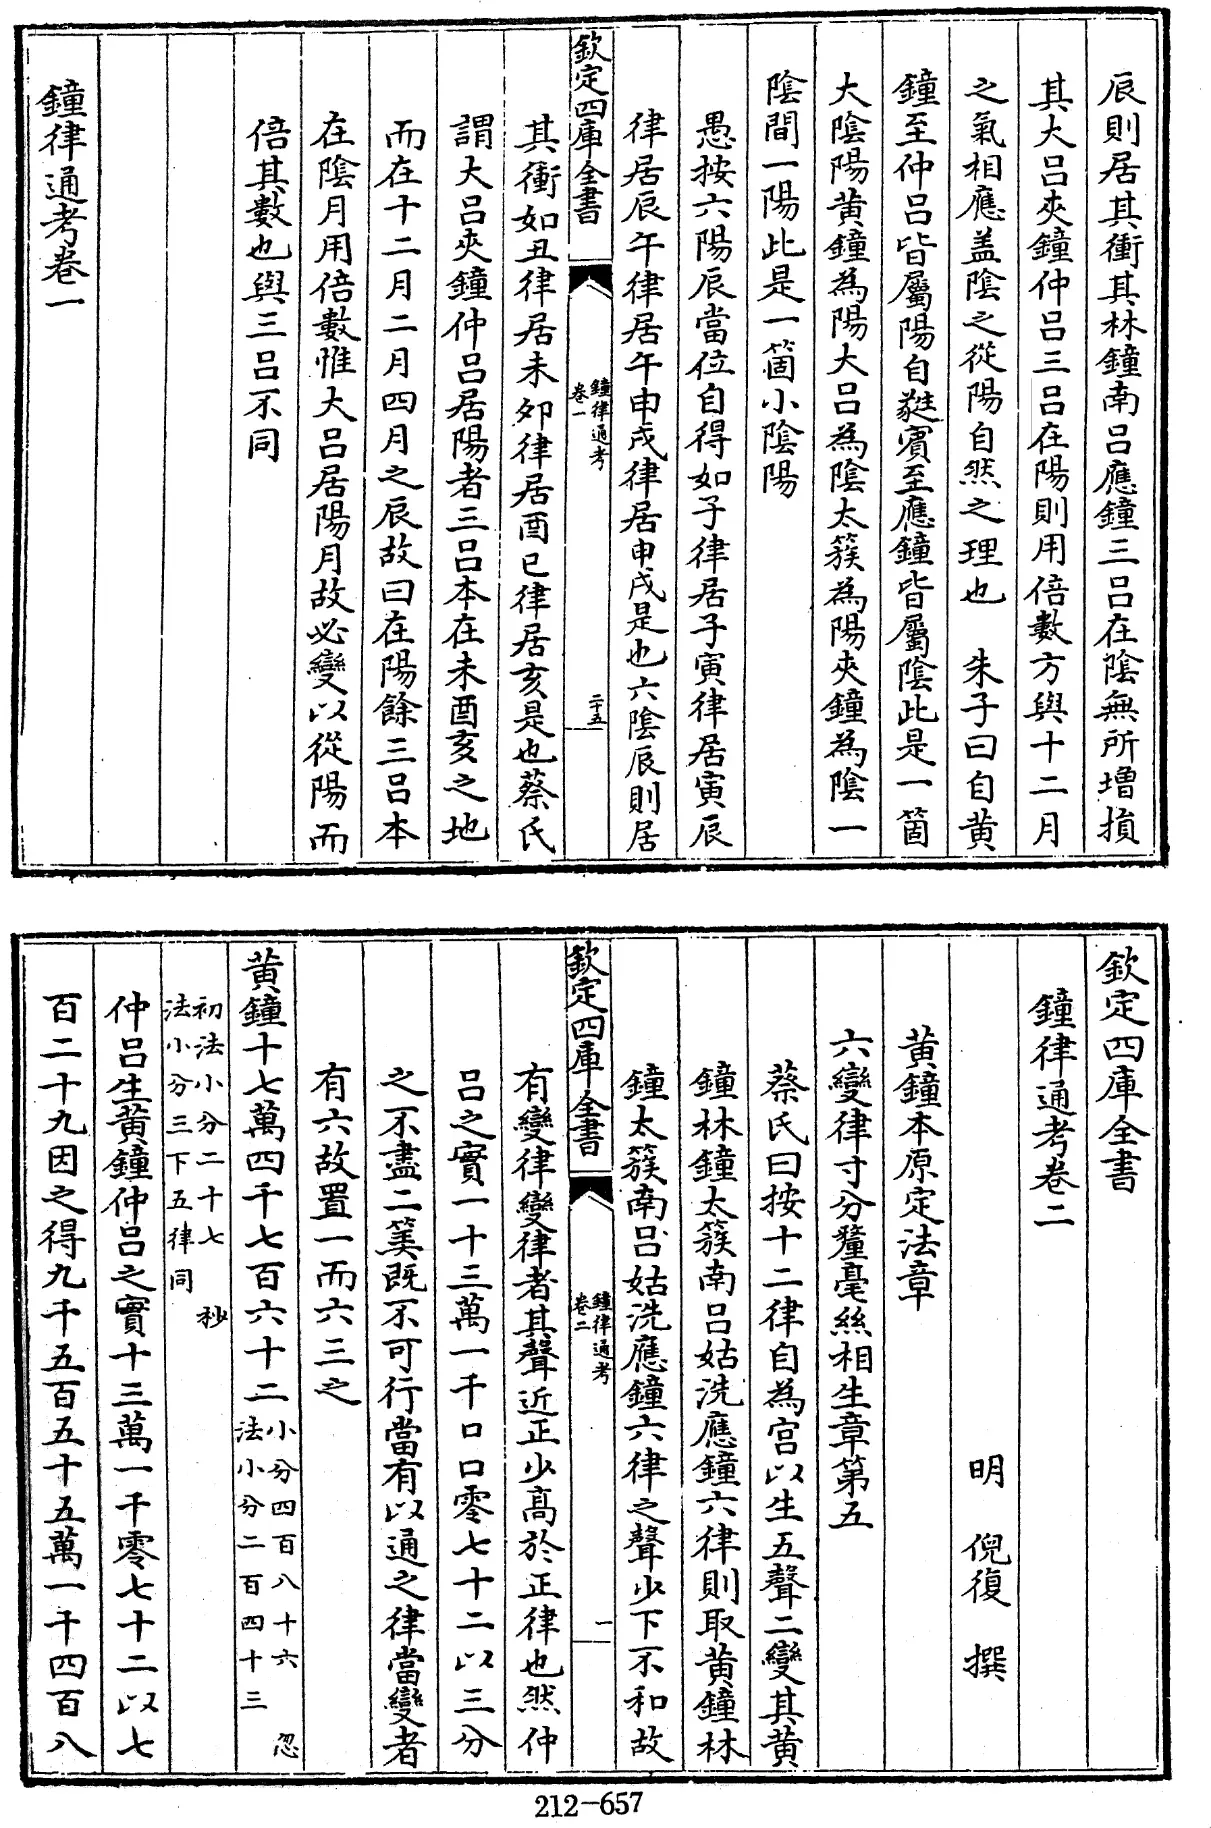 辰則居其衝其林鐘南呂應鐘三呂在陰無所増損
其大呂夾鐘仲呂三呂在陽則用倍數方與十二月
之氣相應盖陰之從陽自然之理也　朱子曰自黄
鐘至仲呂皆屬陽自蕤賓至應鐘皆屬陰此是一箇
大陰陽黄鐘為陽大呂為陰太簇為陽夾鐘為陰一
陰間一陽此是一箇小陰陽
愚按六陽辰當位自得如子律居子寅律居寅辰
律居辰午律居午申戌律居申戌是也六陰辰則居
欽定四庫全書
鐘律通考
卷一
二十五
其衝如丑律居未夘律居酉巳律居亥是也蔡氏
謂大呂夾鐘仲呂居陽者三呂本在未酉亥之地
而在十二月二月四月之辰故曰在陽餘三呂本
在陰月用倍數惟大呂居陽月故必變以從陽而
倍其數也與三呂不同
鐘律通考卷一
欽定四庫全書
鐘律通考卷二
明　倪復　撰
黄鐘本原定法章
六變律寸分釐毫絲相生章第五
蔡氏曰按十二律自為宫以生五聲二變其黄
鐘林鐘太簇南呂姑洗應鐘六律則取黄鐘林
鐘太簇南呂姑洗應鐘六律之聲少下不和故
欽定四庫全書
鐘律通考
卷二
一
有變律變律者其聲近正少高於正律也然仲
呂之實一十三萬一千口口零七十二以三分
之不盡二筭既不可行當有以通之律當變者
有六故置一而六三之
黄鐘十七萬四千七百六十二小分四百八十六　忽
法小分二百四十三
初法小分二十七　秒
法小分三下五律同
仲呂生黄鐘仲呂之實十三萬一千零七十二以七
百二十九因之得九千五百五十五萬一千四百八
212-657